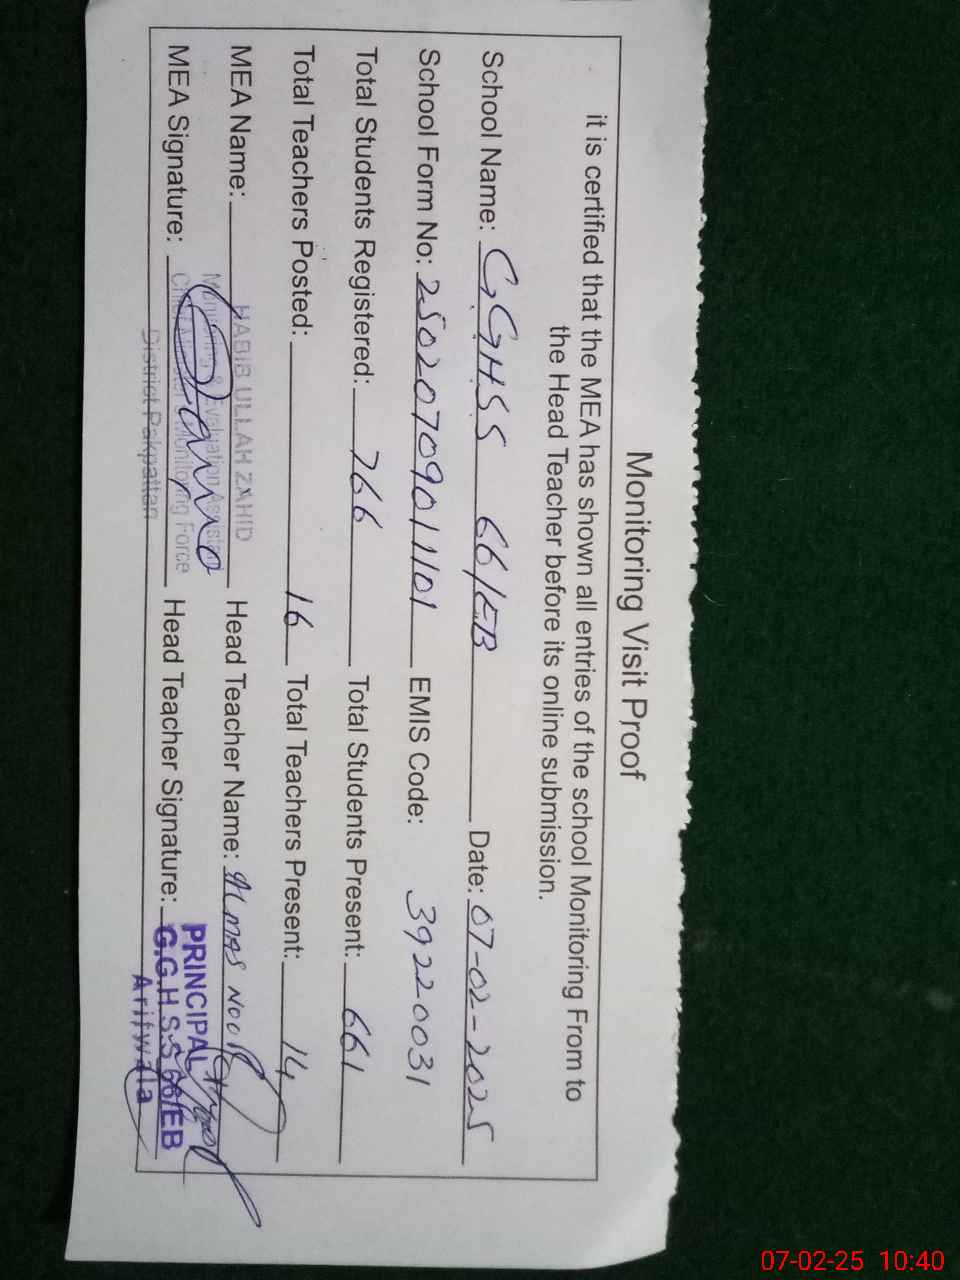 Monitoring Visit Proof
it is certified that the MEA has shown all entries of the school Monitoring From to
the Head Teacher before its online submission.
School Name: GGHSS 66/EB Date: 07-02-2025
School Form No: 25020709011101 EMIS Code: 39220031
Total Students Registered: 766 Total Students Present: 661
Total Teachers Posted: 16 Total Teachers Present: 14
MEA Name: HABIB ULLAH ZAHID Head Teacher Name: Almas Noor
Monitoring & Evaluation Assistant
MEA Signature: Chief Minister Monitoring Force Head Teacher Signature: PRINCIPAL
District Pakpattan
G.G.H S.S 66/EB
Arifwala
07-02-25 10:40